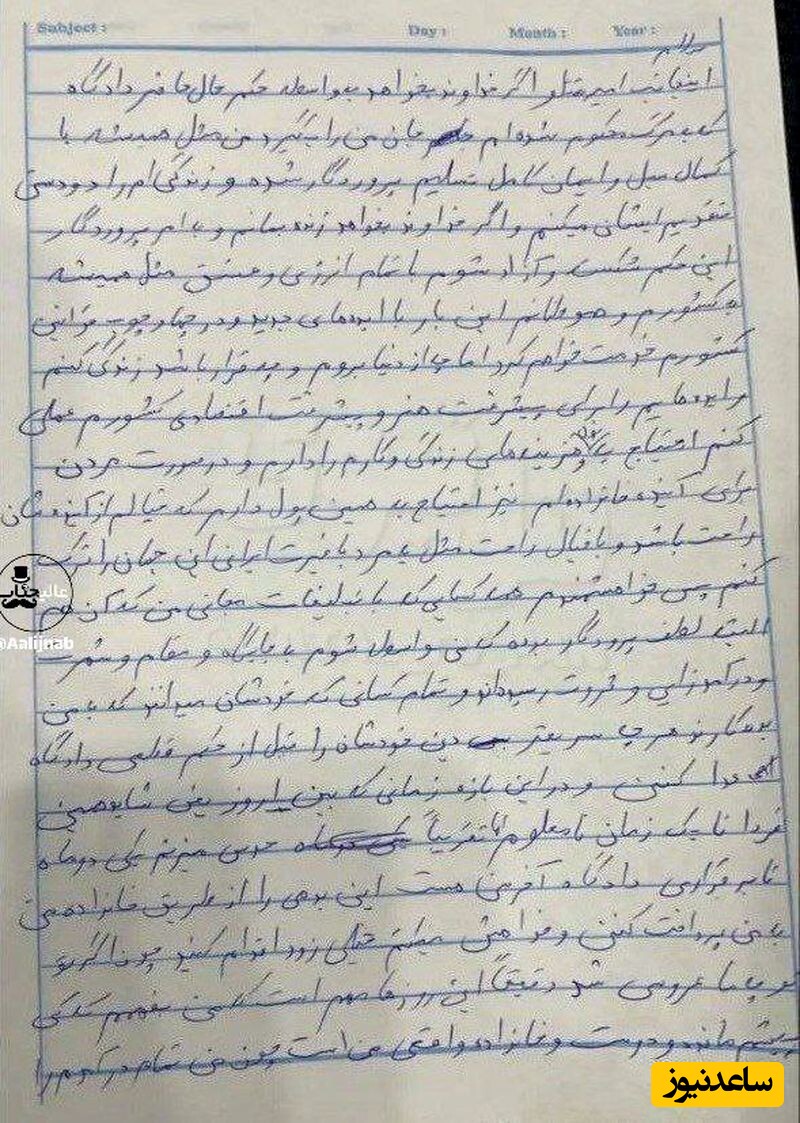 Subject : Day : Month : Year :
سلام
اینجانب امیر مقتلو اگر خداوند بخواهد بواسطه حکم حال حاضر دادگاه
که به مرگ محکوم شده ام جان من را بگیرد من مثل همیشه با
کمال میل و ایمان کامل تسلیم پروردگار شده و زندگی ام را دودستی
تقدیم ایشان میکنم و اگر خداوند بخواهد زنده بمانم و با امر پروردگار
این حکم شکست و آزاد شوم با تمام انرژی و عشق مثل همیشه
به کشورم و هموطنانم این بار با ایده‌های جدید و در چهارچوب قوانین
کشورم خدمت خواهم کرد اما چه از دنیا بروم و چه قرار باشد زندگی کنم
و ایده هایم را برای پیشرفت هنر و پیشرفت اقتصادی کشورم عملی
کنم احتیاج به هزینه‌های زندگی و کارم را دارم و در صورت مردن
برای آینده خانواده‌ام نیز احتیاج به همین پول دارم که خیالم از آینده‌شان
راحت باشد و با خیال راحت مثل یه مرد باغیرت ایرانی این جهان را ترک
کنم پس خواهشمندم همه کسایی که با تبلیغات مجانی من که آن هم
البته لطف پروردگار بوده که من واسطه شوم به جایگاه و مقام و شهرت
و درآمدزایی و ثروت رسیدند و تمام کسانی که خودشان میدانند که به من
بدهکارند هر چه سریعتر دین خودشان را قبل از حکم قطعی دادگاه
ادا کنن و در این بازه زمانی که بین امروز یعنی شایدهمین
فردا تا یک زمان نامعلوم تقریباً حدس میزنم یکی دوماه
تا برقراری دادگاه آخر من هست این بدهی را از طریق خانواده من
به من پرداخت کنن و خواهش میکنم خیلی زود اقدام کنید چون اگر یه
عروسی شد دقیقاً این روزها مهم است که من بفهمم که کی
پیشم مانده و درست و خانواده واقعی من است چون من تمام درآمدم را
عالیجناب
@Aalijnab
ساعدنیوز